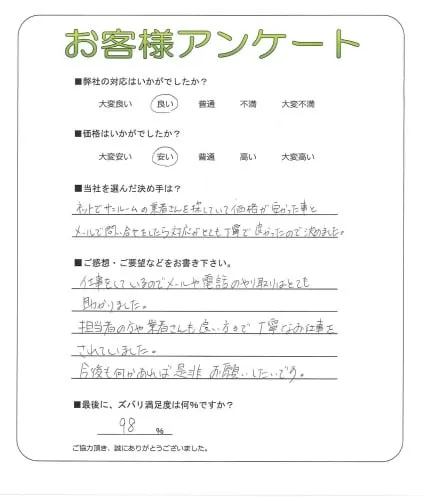 お客様アンケート
■弊社の対応はいかがでしたか?
大変良い 良い 普通 不満 大変不満
■価格はいかがでしたか?
大変安い 安い 普通 高い 大変高い
■当社を選んだ決め手は?
ネットでサンルームの業者さんを探していて価格が良かった事と
メールで問い合せをしたら対応がとても丁寧で良かったので決めました。
■ご感想・ご要望などをお書き下さい。
仕事をしているのでメールや電話のやり取りはとても
助かりました。
担当者の方や業者さんも良い方で丁寧なお仕事を
されていました。
今後も何かあれば是非お願いしたいです。
■最後に、ズバリ満足度は何%ですか?
98 %
ご協力頂き、誠にありがとうございました。